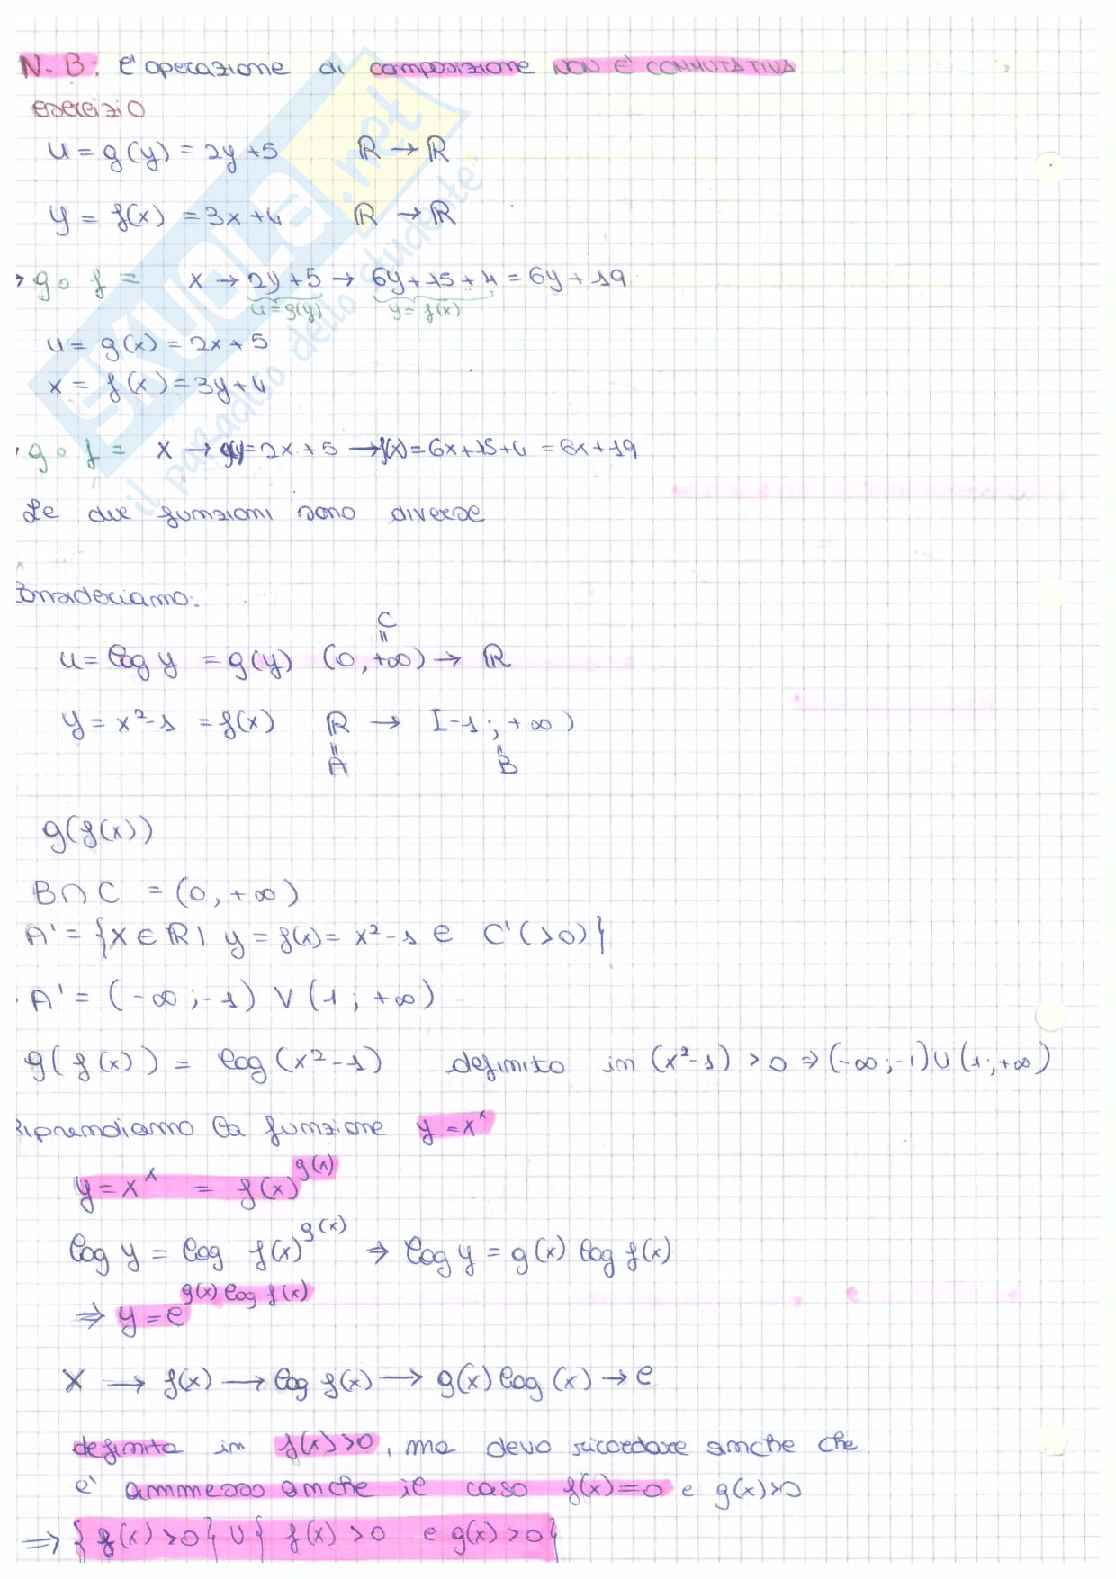 N.B: l'operazione di composizione NON E' COMMUTATIVA
esercizio
u = g(y) = 2y+5 ℝ → ℝ
y = f(x) = 3x+4 ℝ → ℝ
g∘f = x → 2y+5 → 6y+15+4 = 6y+19
u=g(y) y=f(x)
u = g(x) = 2x+5
x = f(x) = 3y+4
g∘f = x → =2x+5 → f(x) = 6x+15+4 = 6x+19
Le due funzioni sono diverse
Consideriamo:
C
=
u = log y = g(y) (0, +∞) → ℝ
y = x²-1 = f(x) ℝ → [-1; +∞)
= =
A B
g(f(x))
B∩C = (0, +∞)
A' = {x ∈ ℝ | y = f(x) = x²-1 e C' (>0)}
A' = (-∞; -1) ∨ (1; +∞)
g(f(x)) = log(x²-1) definito in (x²-1) > 0 ⇒ (-∞; -1) ∪ (1; +∞)
Riprendiamo la funzione y = x^x
y = x^x = f(x)^g(x)
log y = log f(x)^g(x) ⇒ log y = g(x) log f(x)
⇒ y = e^g(x) log f(x)
x → f(x) → log f(x) → g(x) log (x) → e
definita in f(x)>0, ma devo ricordare anche che
e' ammesso anche il caso f(x)=0 e g(x)>0
⇒ {f(x)>0} ∪ {f(x)>0 e g(x)>0}
SKUOLA.net
il paradiso dello studente